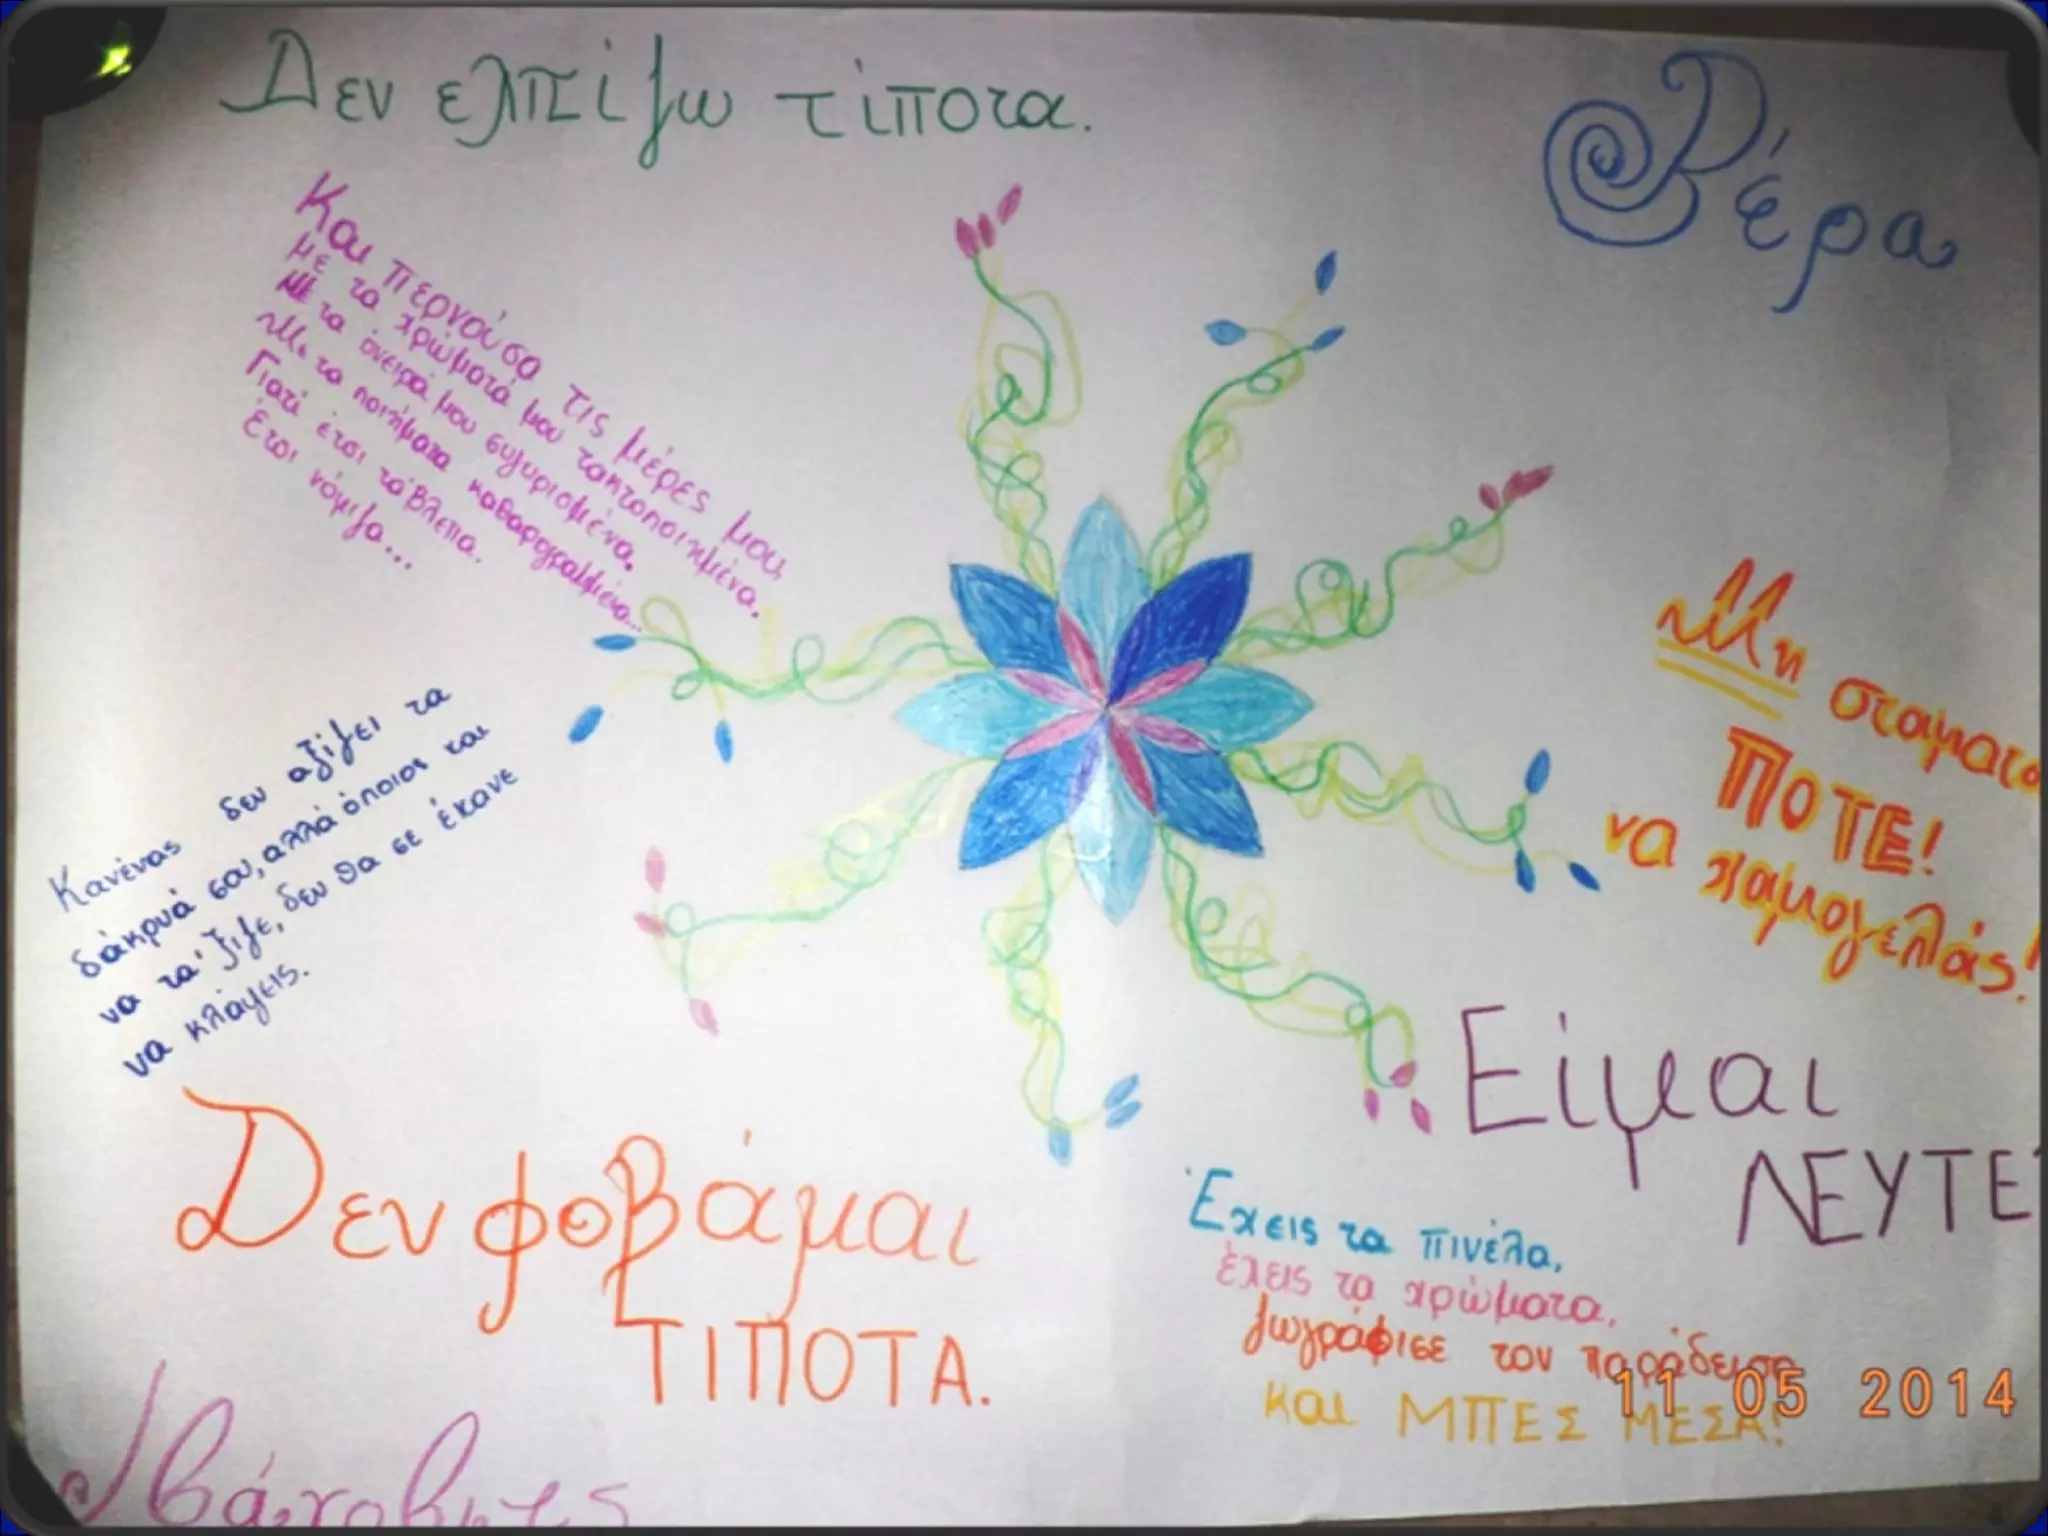 Δεν ελπίζω τίποτα.
Βέρα
Και περνούσα τις μέρες μου
με τα χρώματά μου τακτοποιημένα.
Με τα όνειρά μου συγυρισμένα.
Με τα ποιήματα καθαρογραμμένα...
Γιατί έτσι τα'βλεπα.
Έτσι νόμιζα...
Μη σταματα
ΠΟΤΕ!
να χαμογελάς!
Κανένας δεν αξίζει τα
δάκρυά σου, αλλά όποιος και
να τα' ξιζε, δεν θα σε έκανε
να κλάψεις.
Είμαι
ΛΕΥΤΕ
Δεν φοβάμαι
ΤΙΠΟΤΑ.
Έχεις τα πινέλα,
έχεις τα χρώματα,
ζωγράφισε τον παράδεισο
και ΜΠΕΣ ΜΕΣΑ!
11 05 2014